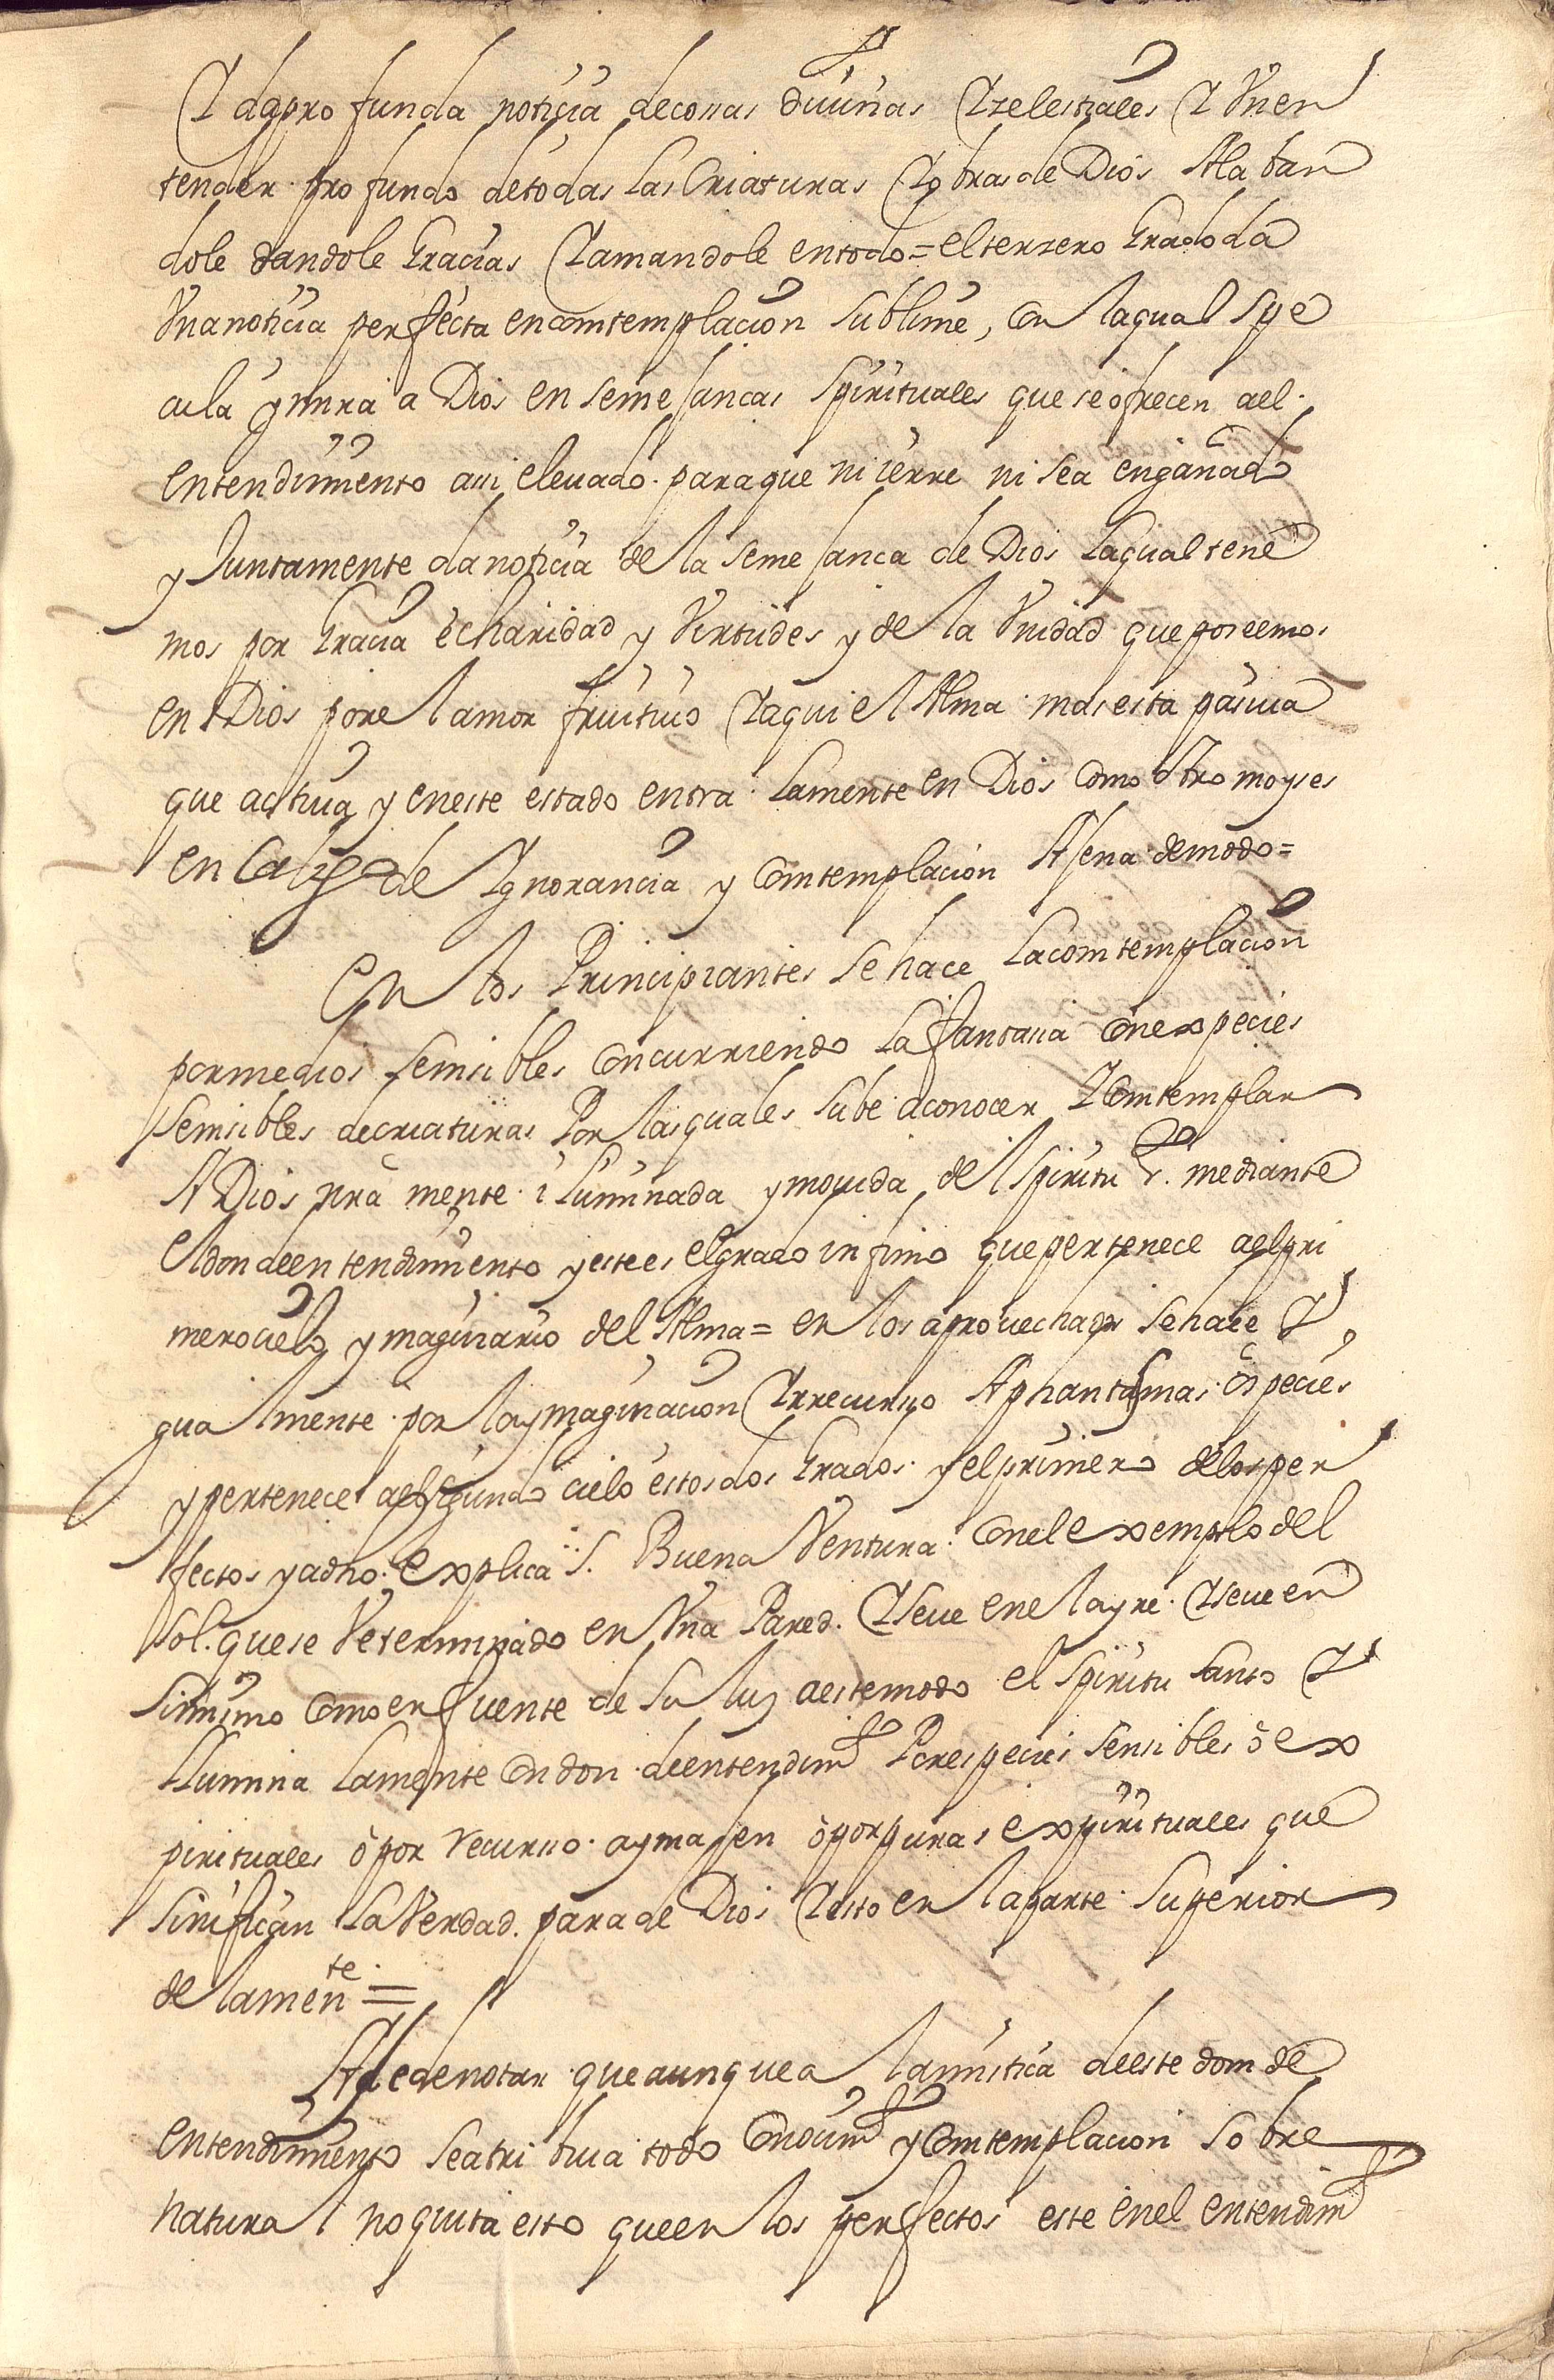 Y da profunda noticia de cossas diuinas Y zelestiales Y Vn en
tender profundo de todas las Criaturas Y obras de Dios Alaban
dole dandole Gracias Y amandole en todo = el terzero Grado da
Vna noticia perfecta en comtemplacion sublime, con la qual spe
cula y mira a Dios en semejancas spirituales que se ofrecen ael
entendimiento assi eleuado. para que ni ierre ni sea engañado
y Juntamente da noticia de la semejanca de Dios la qual tene
mos por Gracia e charidad y Virtudes y de la Vnidad que poseemos
en Dios por el amor fruitiuo Y aqui el Alma mas esta pasiua
que actiua y en este estado entra la mente en Dios como otro moyses
en Calig de Ygnorancia y Comtemplacion Ajena de modo =
En los Principiantes se hace la comtemplacion
por medios semsibles concurriendo la fantasia con expecies
semsibles de criaturas Por las quales sube a conocer Y Comtemplar
A Dios nra mente iluminada y mouida del spiritu S. mediante
el don de entendimiento y este es el grado infimo que pertenece ael pri
mero cielo ymaginario del Alma = en los aprouechados se hace Y
gualmente por la ymaginacion Y rrecurso A phantasmas o species
y pertenece ael segundo cielo estos dos Grados y el primero de los per
fectos ya dho. explica S. Buena Ventura con el exemplo del
sol. que se Ve terminado en Vna Pared. Y se ue en el ayre. Y se ue en
si mismo como en fuente de su luz a este modo el spiritu santo Y
llumina la mente con don de entendimto Por especies sensibles o ex
pirituales o por recurso a ymajen o por puras expirituales que
sinifican la Verdad. para de Dios Y esto en la parte superior
de la mente =
A se de notar que aunque a la mistica de este dom de
entendimiento se atribuia todo conocimto y Comtemplacion sobre
natural no quita esto que en los perfectos este en el entendimto